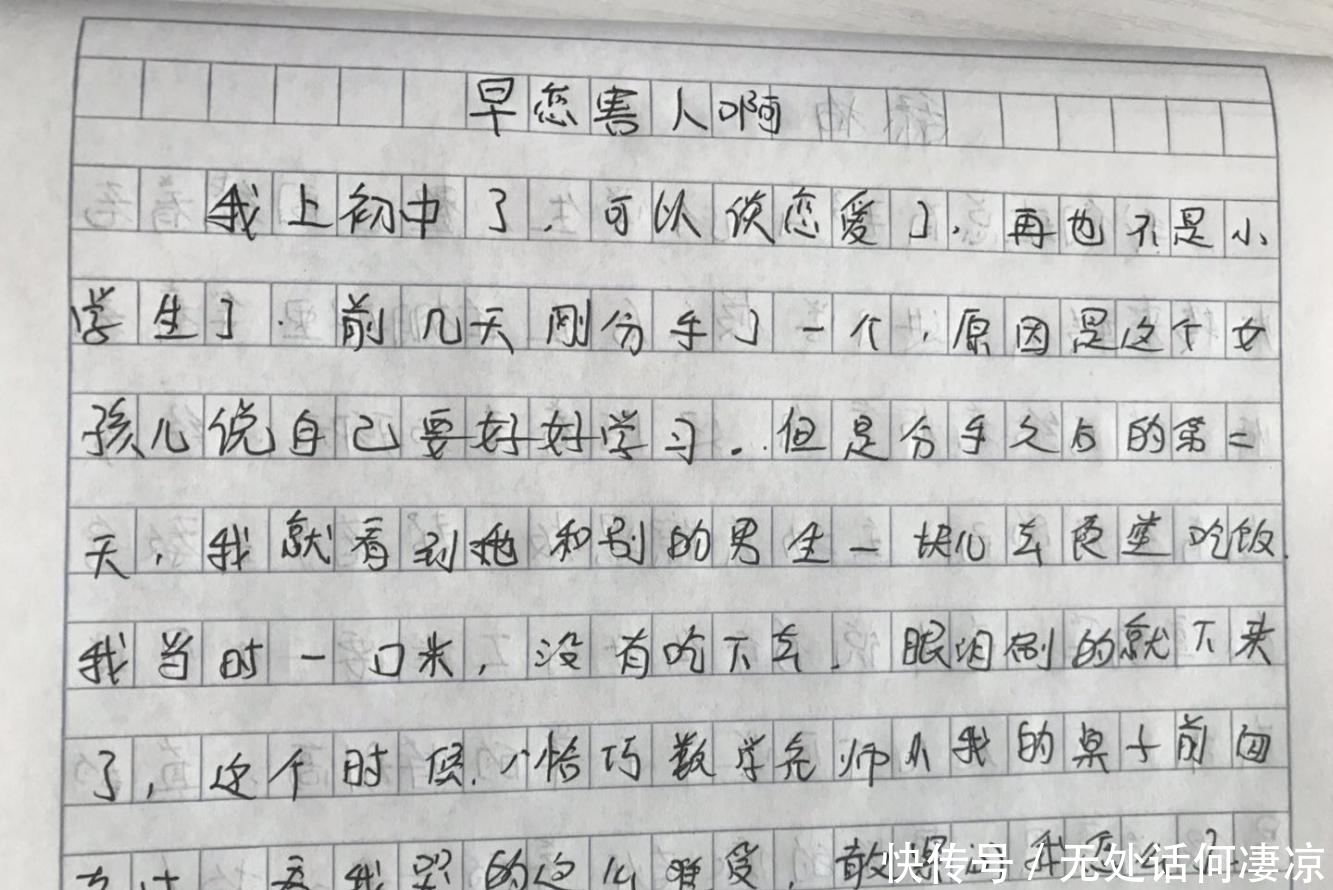 早恋害人啊
我上初中了，可以谈恋爱了，再也不是小
学生了．前几天刚分手了一个，原因是这个女
孩儿说自己要好好学习．但是分手之后的第二
天，我就看到她和别的男生一块儿去食堂吃饭．
我当时一口米，没有吃下去，眼泪刷的就下来
了，这个时候，恰巧数学老师从我的桌子前面
我哭的这么难受，
快传号／无处话何凄凉